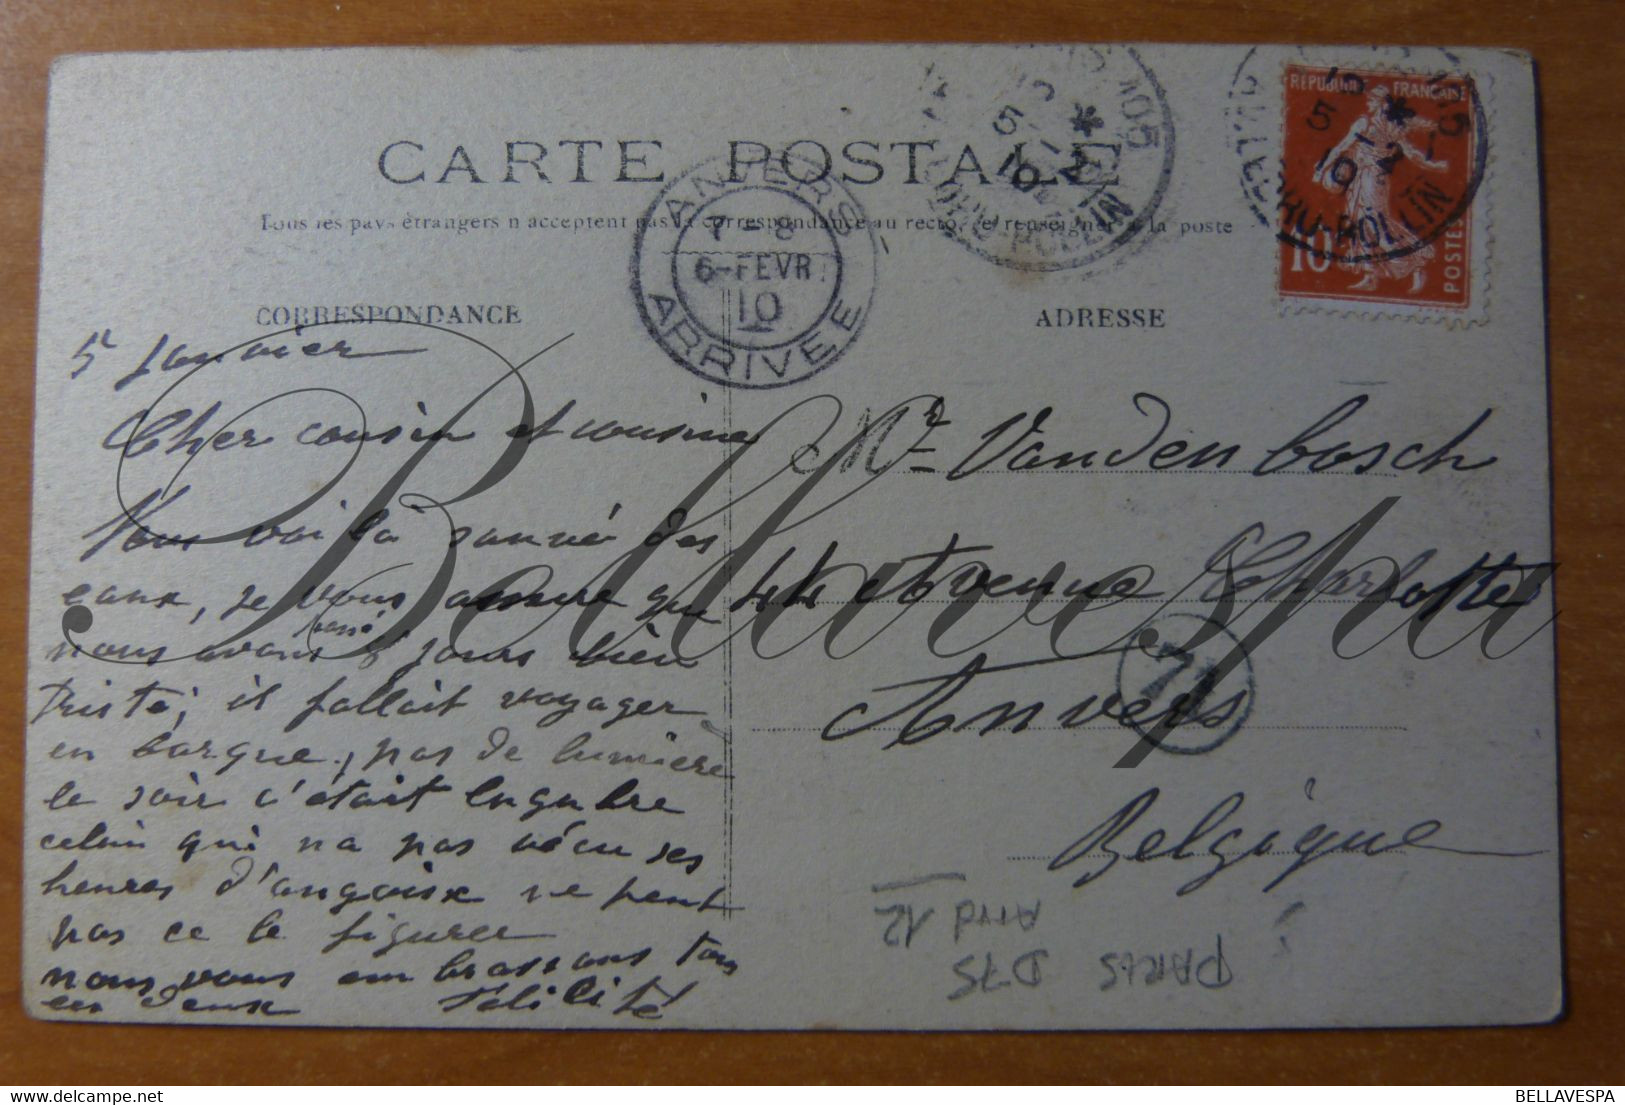 CARTE POSTALE
Tous les pays étrangers n'acceptent pas la correspondance au recto, se renseigner à la poste
CORRESPONDANCE
ADRESSE
REPUBLIQUE FRANÇAISE
10
POSTES
ANVERS
7 - 8
6-FEVR
10
ARRIVEE
5 Janvier
Cher cousin et cousine
Nous voilà sauvé des
eaux, je vous assure que
nous avons passé 8 jours bien
triste, il fallait voyager
en barque, pas de lumière
le soir c'était lugubre
celui qui n'a pas vécu ses
heures d'angoisse ne peut
pas ce le figurer
nous vous embrassons tous
en deux Félicité
Mr Vanden bosch
44 Avenue Charlotte
Anvers
Belgique
71
PARIS D75
Arrd 12
Bellavespa
BELLAVESPA